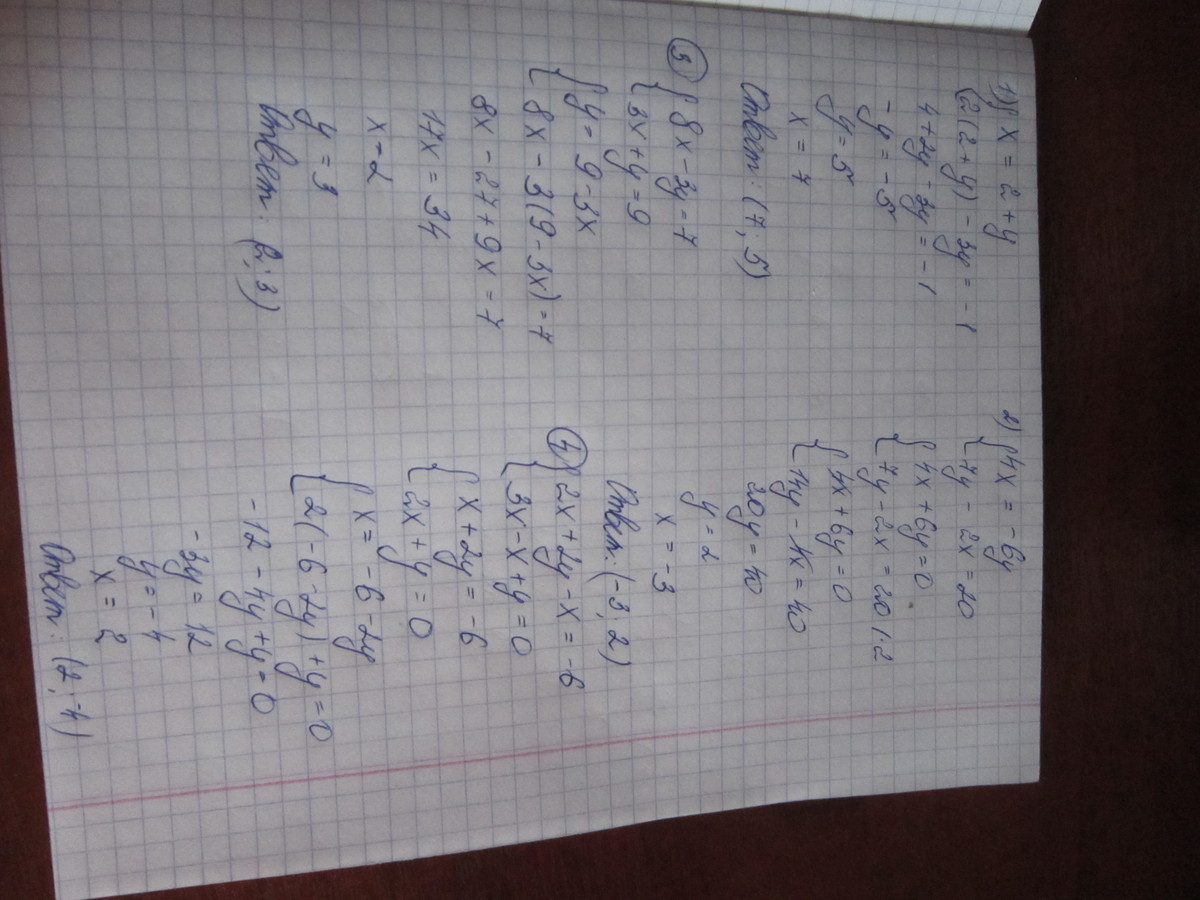 1) { x = 2 + y
{ 2(2+y) - 3y = -1
4 + 2y - 3y = -1
-y = -5
y = 5
x = 7
Ответ: (7; 5)
3) { 8x - 3y = 7
{ 3x + y = 9
{ y = 9 - 3x
{ 8x - 3(9 - 3x) = 7
8x - 27 + 9x = 7
17x = 34
x = 2
y = 3
Ответ: (2; 3)
2) { 4x = -6y
{ 7y - 2x = 20
{ 4x + 6y = 0
{ 7y - 2x = 20 |·2
{ 4x + 6y = 0
{ 14y - 4x = 40
20y = 40
y = 2
x = -3
Ответ: (-3; 2)
4) { 2x + 2y - x = -6
{ 3x - x + y = 0
{ x + 2y = -6
{ 2x + y = 0
{ x = -6 - 2y
{ 2(-6 - 2y) + y = 0
-12 - 4y + y = 0
-3y = 12
y = -4
x = 2
Ответ: (2; -4)